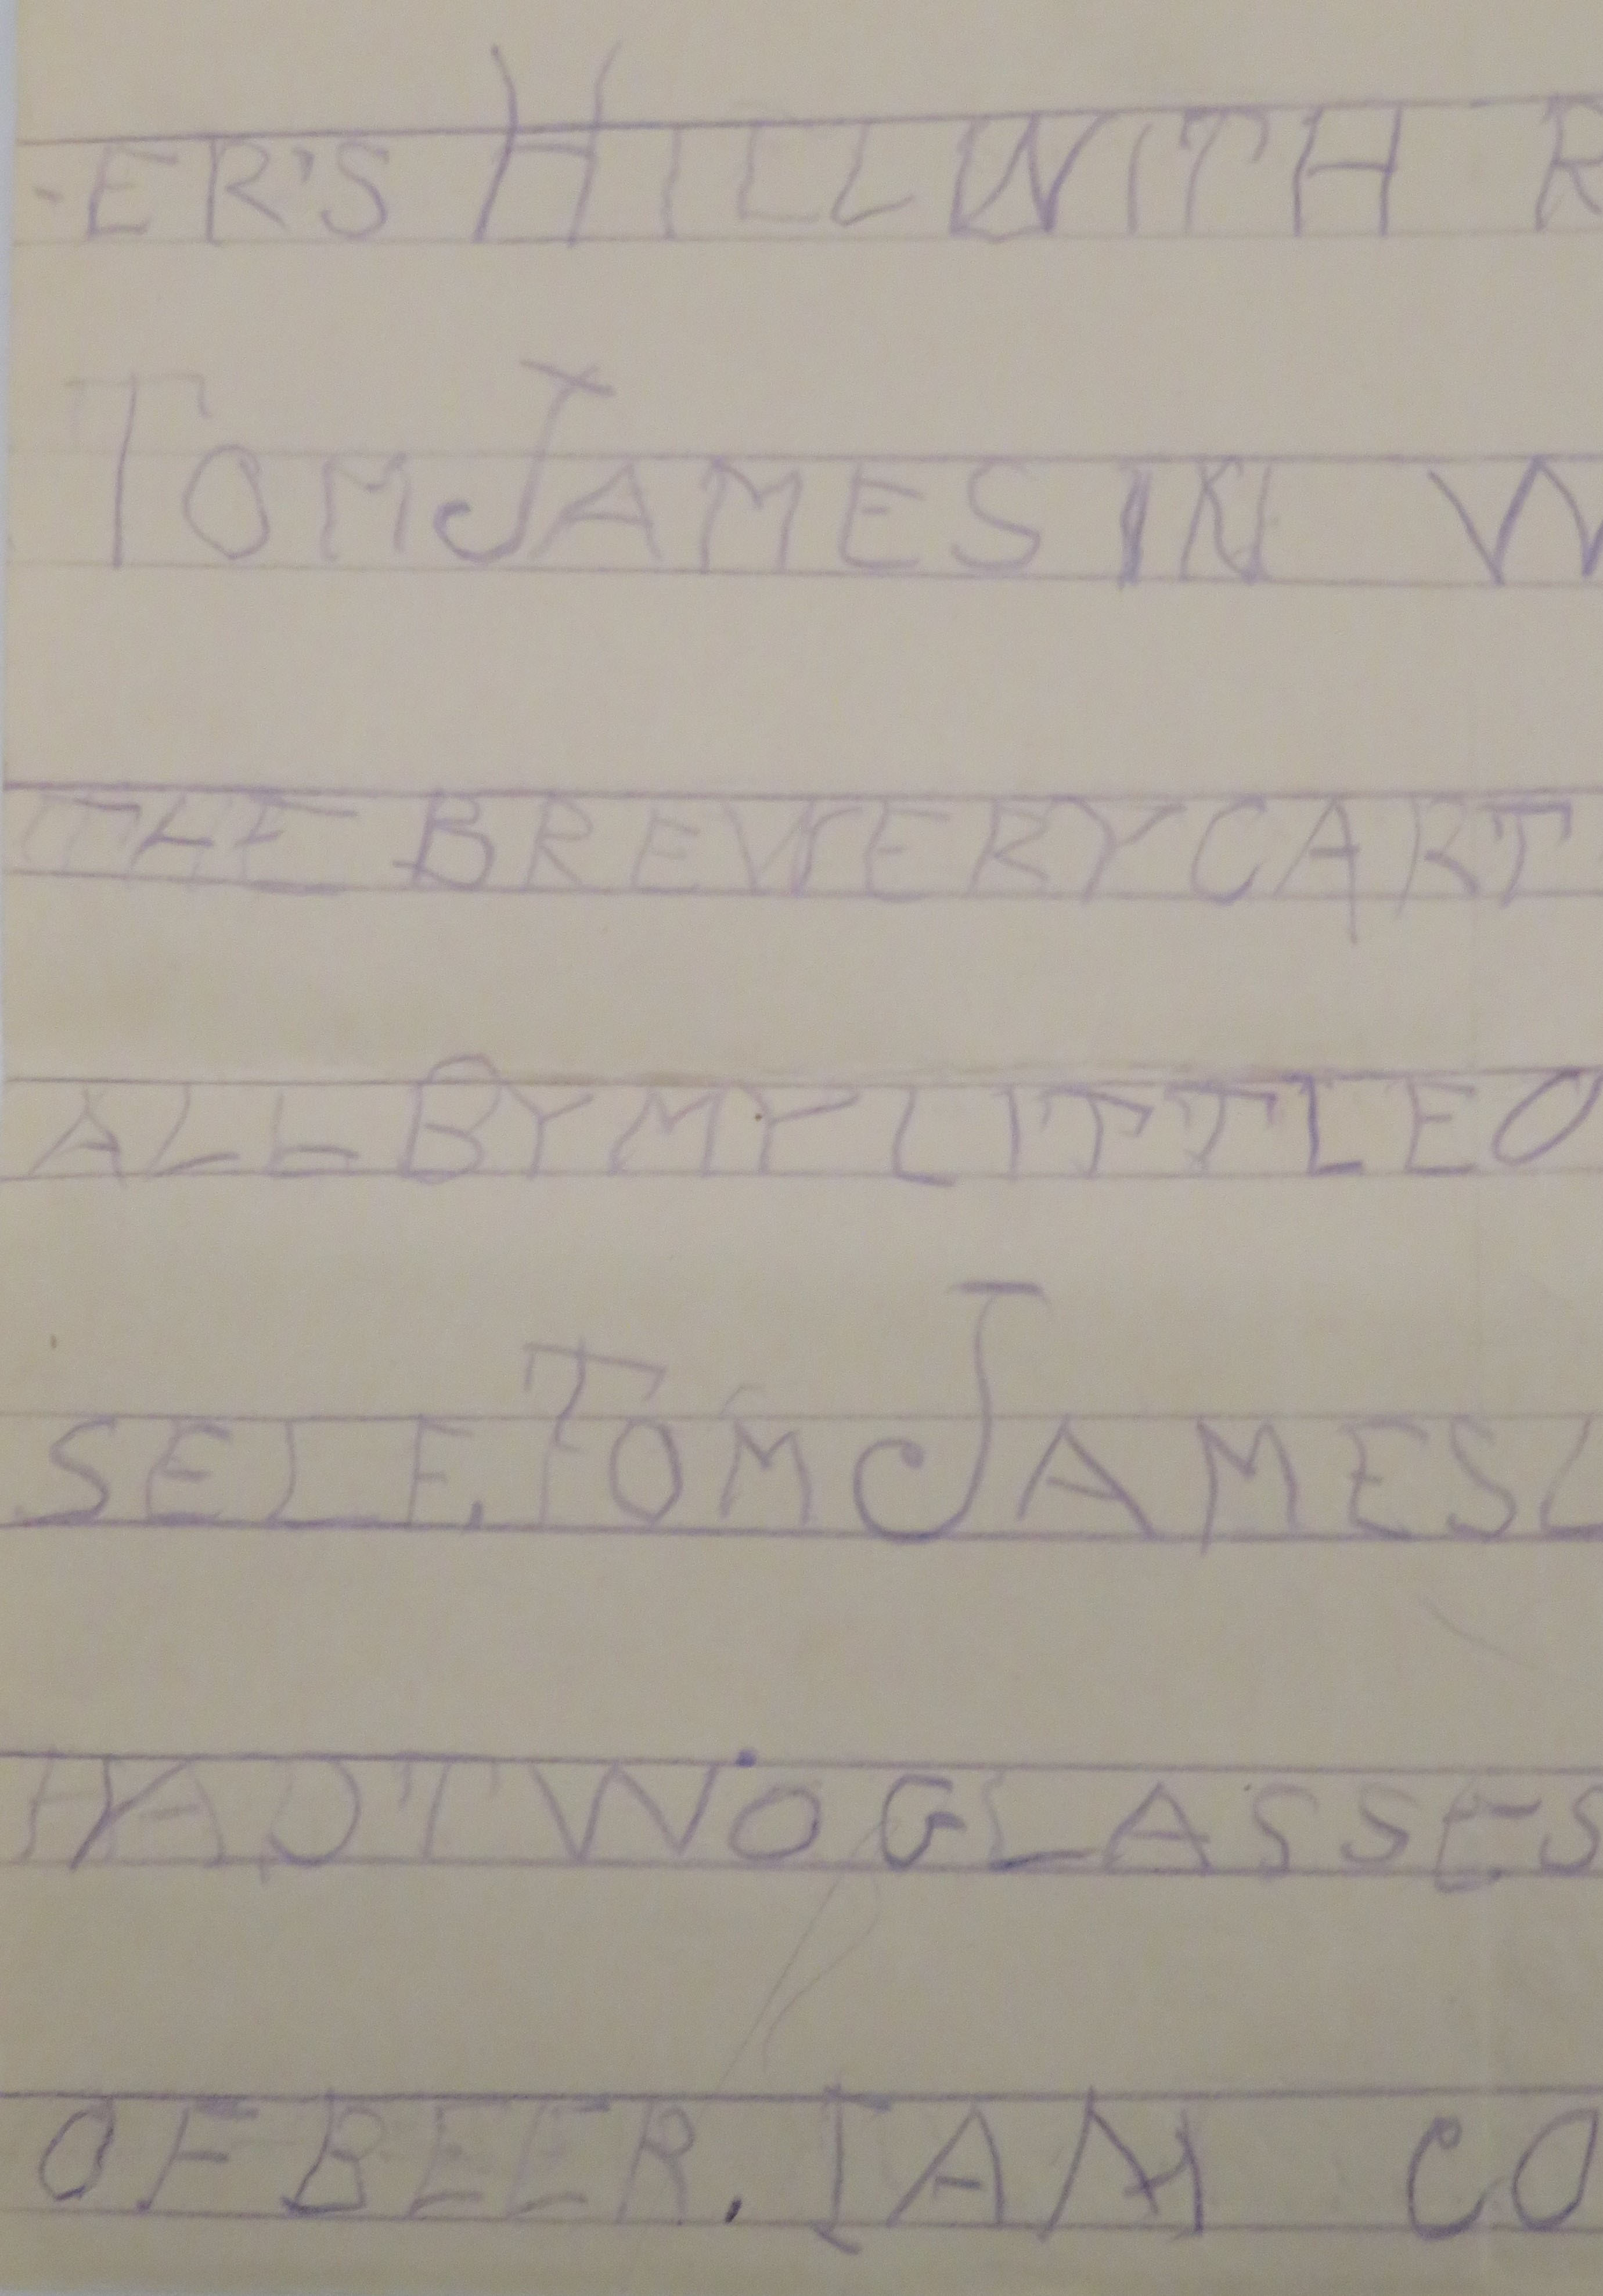 -ER'S HILL WITH R
TOM JAMES IN W
THE BREWERY CART
ALL BY MY LITTLE O
SELF. TOM JAMES L
HAD TWO GLASSES
OF BEER. I AM CO